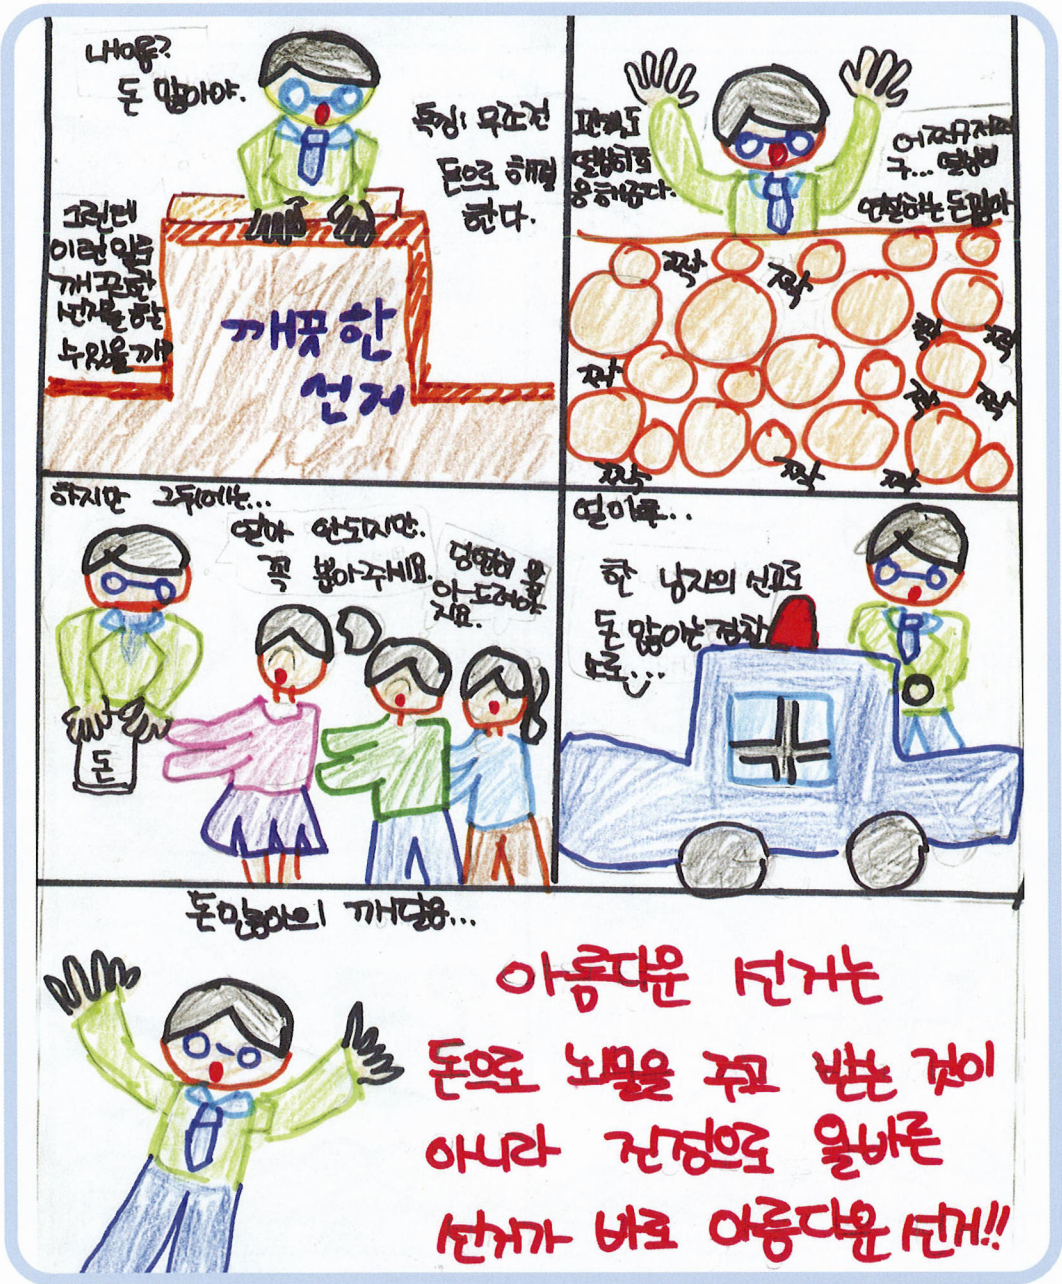 내이름?
돈 많아야.
특징! 무조건
돈으로 해결
한다.
그런데
이런 일로
깨끗한
선거를 할
수 있을까?
깨끗한
선거
열심히도
응해준다.
어쩌구저쩌
구... 열심히
연설하는 돈많아
짝
짝
짝
짝
짝
짝
짝
짝
짝
짝
하지만 그뒤에는...
얼마 안되지만.
꼭 뽑아주세요.
당연히 뽑
아드려야
지요.
얼마후..
한 남자의 신고로
돈 많아는 경찰
소로...
돈
돈많아의 깨달음...
아름다운 선거는
돈으로 뇌물을 주고 받는 것이
아니라 진정으로 올바른
선거가 바로 아름다운 선거!!